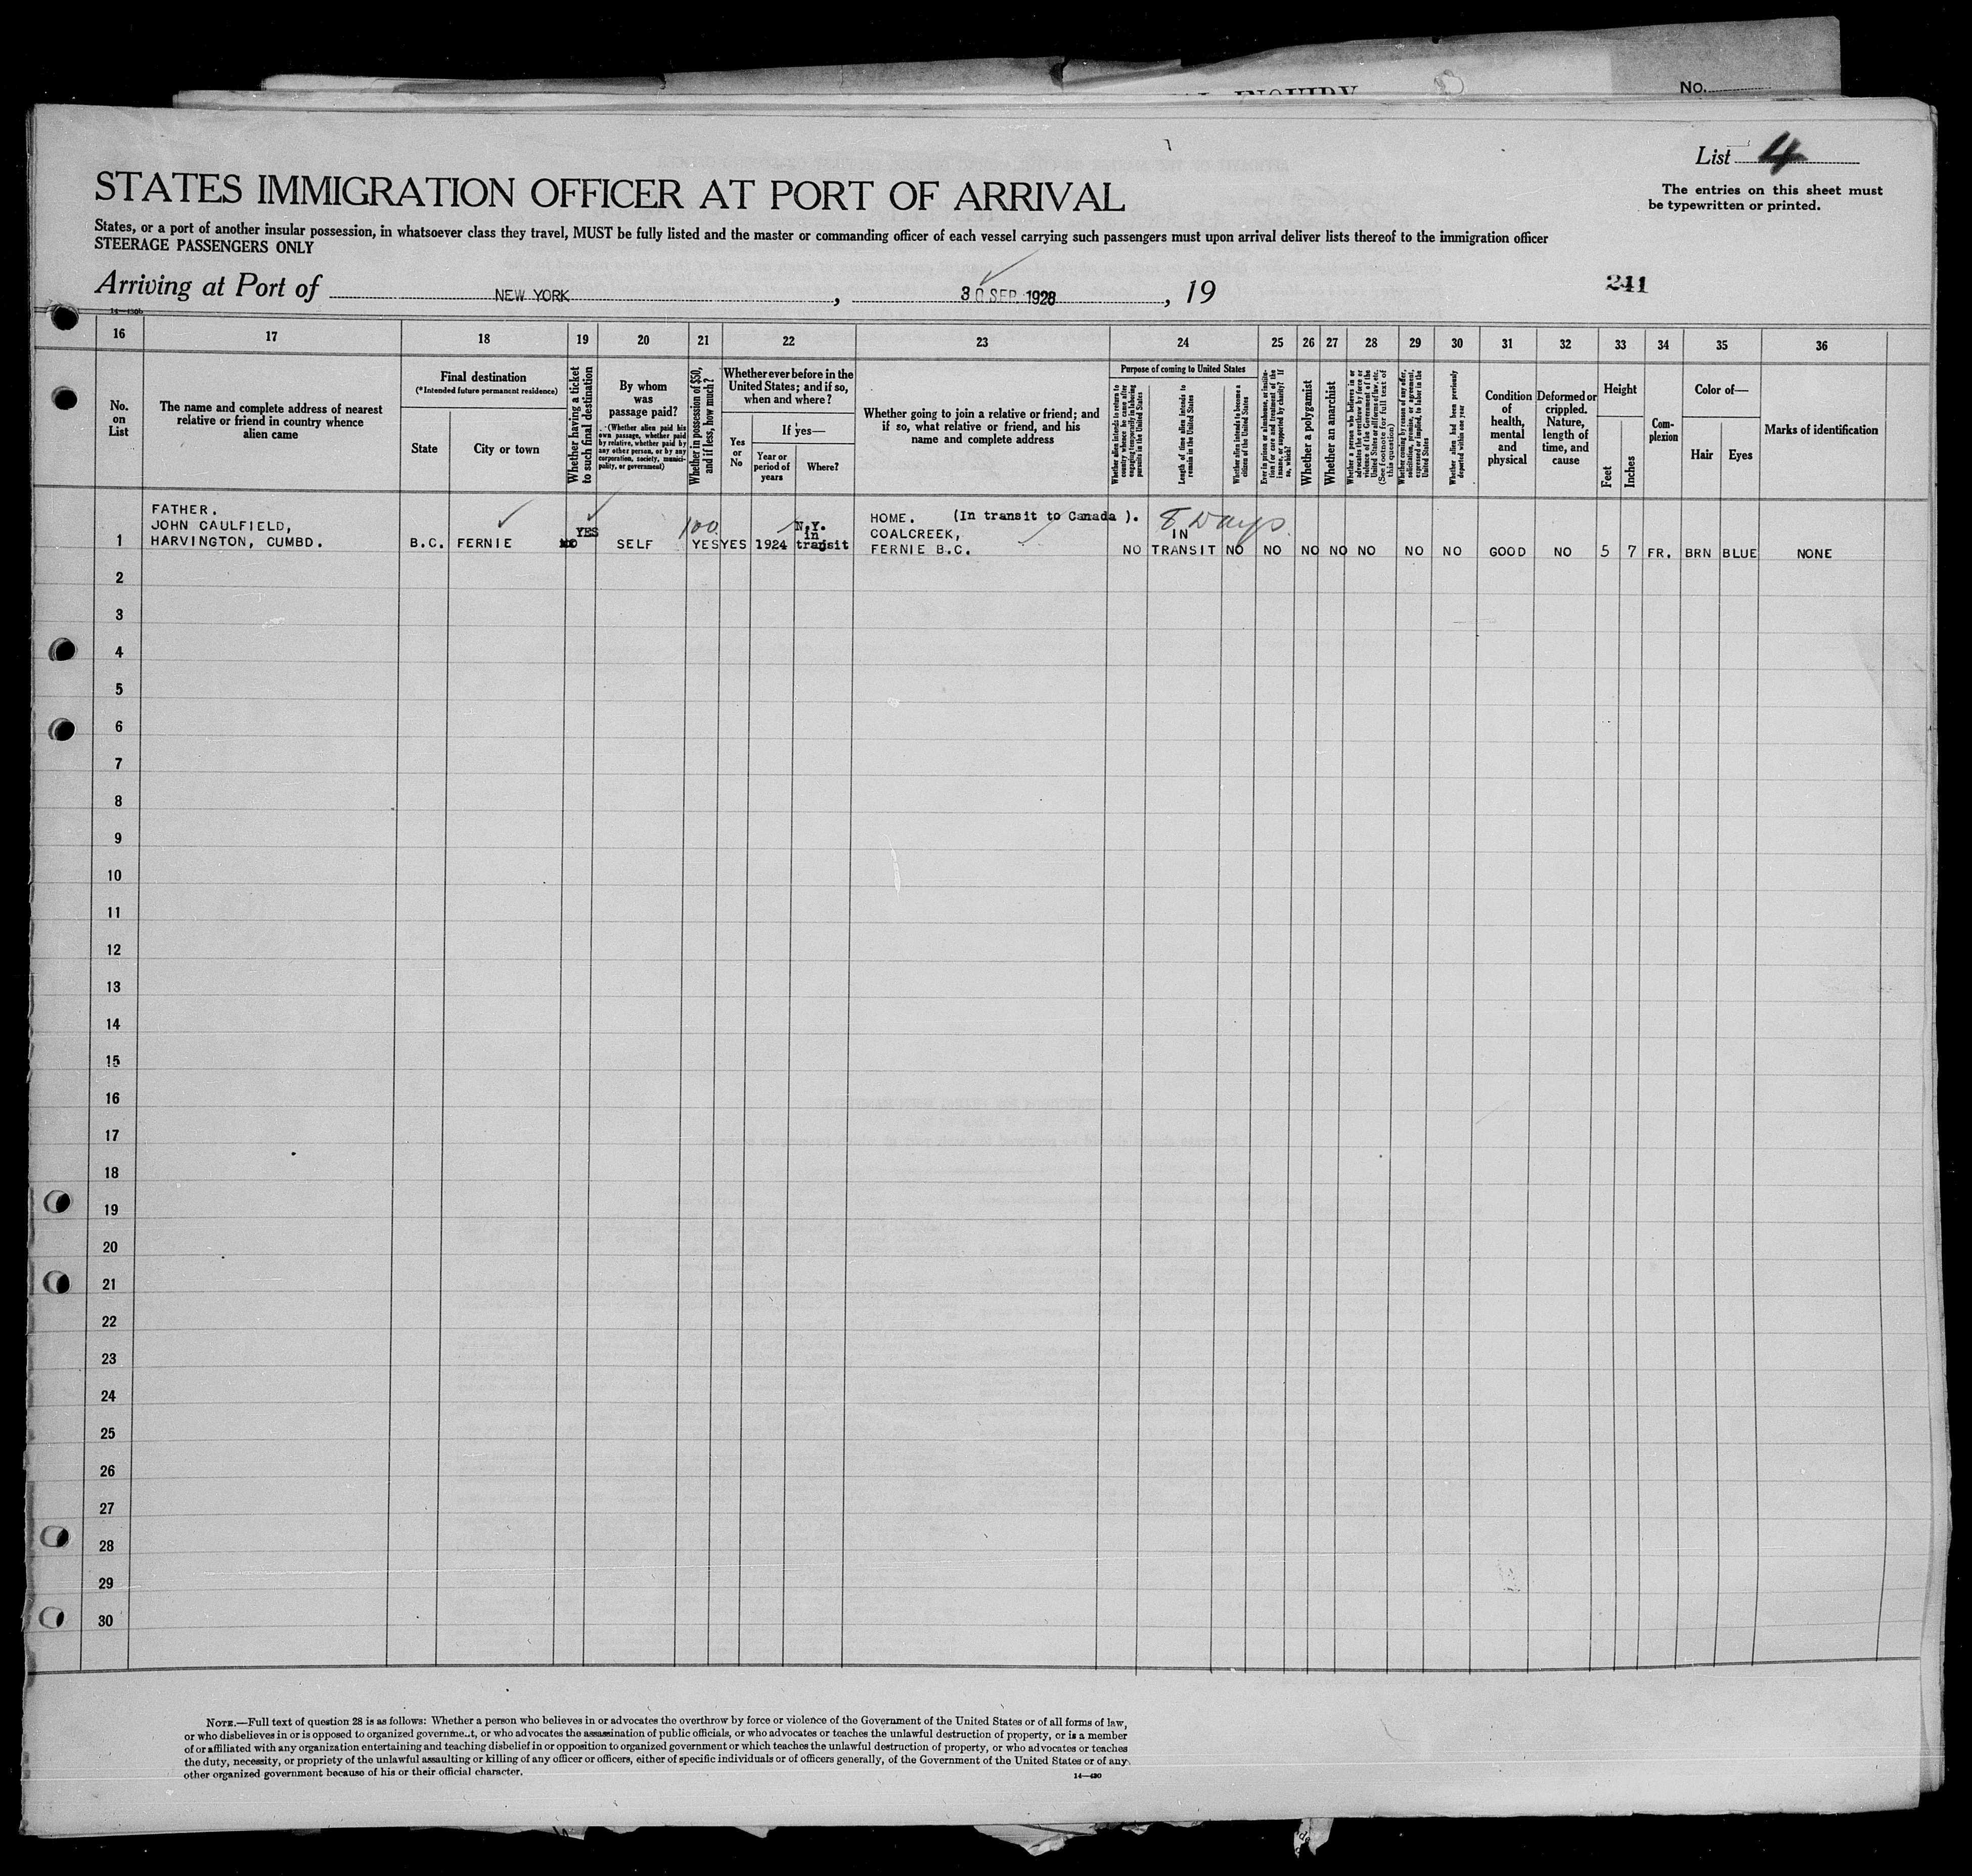 No.
List 4
The entries on this sheet must
be typewritten or printed.
STATES IMMIGRATION OFFICER AT PORT OF ARRIVAL
States, or a port of another insular possession, in whatsoever class they travel, MUST be fully listed and the master or commanding officer of each vessel carrying such passengers must upon arrival deliver lists thereof to the immigration officer
STEERAGE PASSENGERS ONLY
Arriving at Port of NEW YORK, 30 SEP. 1928, 19
241
16 17 18 19 20 21 22 23 24 25 26 27 28 29 30 31 32 33 34 35 36
No.
on
List
The name and complete address of nearest
relative or friend in country whence
alien came
Final destination
(*Intended future permanent residence)
State
City or town
Whether having a ticket
to such final destination
By whom
was
passage paid?
(Whether alien paid his
own passage, whether paid
by relative, whether paid by
any other person, or by any
corporation, society, munici-
pality, or government)
Whether in possession of $50,
and if less, how much?
Whether ever before in the
United States; and if so,
when and where?
Yes
or
No
If yes—
Year or
period of
years
Where?
Whether going to join a relative or friend; and
if so, what relative or friend, and his
name and complete address
Purpose of coming to United States
Whether alien intends to return to
country whence he came after
engaging temporarily in laboring
pursuits in the United States
Length of time alien intends to
remain in the United States
Whether alien intends to become a
citizen of the United States
Ever in prison or almshouse, or institu-
tion for care and treatment of the
insane, or supported by charity? If
so, which?
Whether a polygamist
Whether an anarchist
Whether a person who believes in or
advocates the overthrow by force or
violence of the Government of the
United States or all forms of law, etc.
(See footnote for full text of
this question)
Whether coming by reason of any offer,
solicitation, promise, or agreement,
expressed or implied, to labor in the
United States
Whether alien had been previously
deported within one year
Condition
of
health,
mental
and
physical
Deformed or
crippled.
Nature,
length of
time, and
cause
Height
Feet
Inches
Com-
plexion
Color of—
Hair
Eyes
Marks of identification
FATHER.
JOHN CAULFIELD,
HARVINGTON, CUMBD.
1 B.C. FERNIE
YES
NO
SELF
100
YES YES 1924
N.Y.
in
transit
HOME. (In transit to Canada ).
COALCREEK,
FERNIE B.C.
8 Days
NO
IN
TRANSIT
NO NO NO NO NO NO NO GOOD NO 5 7 FR. BRN BLUE NONE
2
3
4
5
6
7
8
9
10
11
12
13
14
15
16
17
18
19
20
21
22
23
24
25
26
27
28
29
30
NOTE.—Full text of question 28 is as follows: Whether a person who believes in or advocates the overthrow by force or violence of the Government of the United States or of all forms of law,
or who disbelieves in or is opposed to organized government, or who advocates the assassination of public officials, or who advocates or teaches the unlawful destruction of property, or is a member
of or affiliated with any organization entertaining and teaching disbelief in or opposition to organized government or which teaches the unlawful destruction of property, or who advocates or teaches
the duty, necessity, or propriety of the unlawful assaulting or killing of any officer or officers, either of specific individuals or of officers generally, of the Government of the United States or of any
other organized government because of his or their official character.
14—430